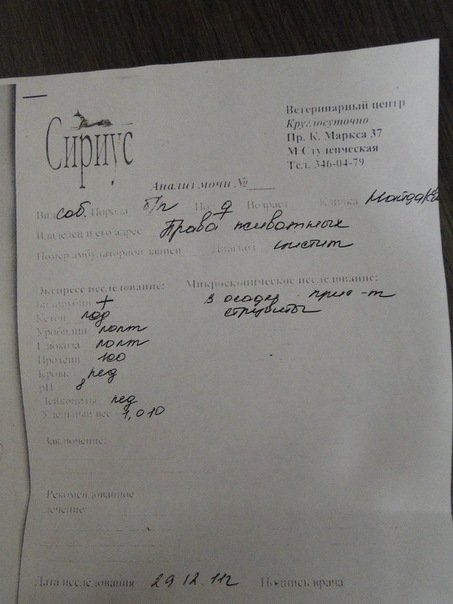 Сириус
Ветеринарный центр
Круглосуточно
Пр. К. Маркса 37
М Студенческая
Тел. 346-04-79
Анализ мочи №
Вид соб. Порода б/п Пол Возраст Кличка
Владелец и его адрес Права животных
Номер амбулаторной записи Диагноз цистит
Экспресс исследование: Микроскопическое исследование:
Билирубин + в осадке
Кетон струвиты
Уробилин
Глюкоза
Протеин 100
Кровь
pH 8
Лейкоциты
Удельный вес 1,010
Заключение:
Рекомендованное
лечение:
Дата исследования 29.12.11г Подпись врача